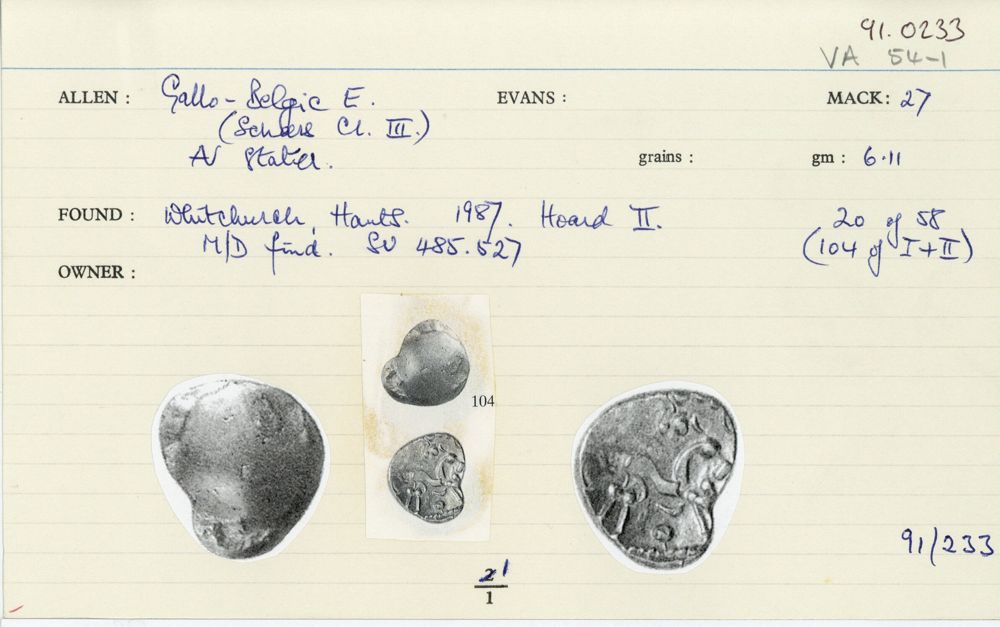 91.0233
VA 54-1
ALLEN : Gallo-Belgic E. EVANS : MACK: 27
(Scheers Cl. III.)
AV Stater. grains : gm : 6.11
FOUND : Whitchurch, Hants. 1987. Hoard II. 20 of 58
M/D find. SU 485.527 (104 of I+II)
OWNER :
104
91/233
1
1